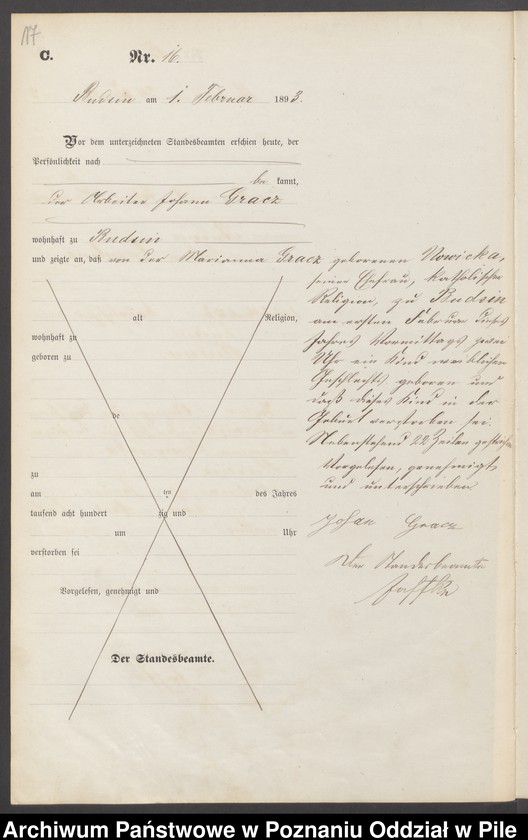 117
C.
Nr. 16.
Budsin am 1. Februar 1893.
Vor dem unterzeichneten Standesbeamten erschien heute, der
Persönlichkeit nach
be kannt,
der Arbeiter Johann Gracz
wohnhaft zu Budsin
und zeigte an, daß von der Marianna Gracz geborenen Nowicka,
seiner Ehefrau, katholischer
Religion, zu Budsin
am ersten Februar dieses
Jahres Vormittags zwei
Uhr ein Kind weiblichen
Geschlechts geboren und
daß dieses Kind in der
Geburt verstorben sei.
Nebenstehend 22 Zeilen gestrichen
Vorgelesen, genehmigt
und unterschrieben
Johan Gracz
Der Standesbeamte
alt Religion,
wohnhaft zu
geboren zu
de
zu
am im des Jahres
tausend acht hundert zig und
um Uhr
verstorben sei
Vorgelesen, genehmigt und
Der Standesbeamte.
Archiwum Państwowe w Poznaniu Oddział w Pile